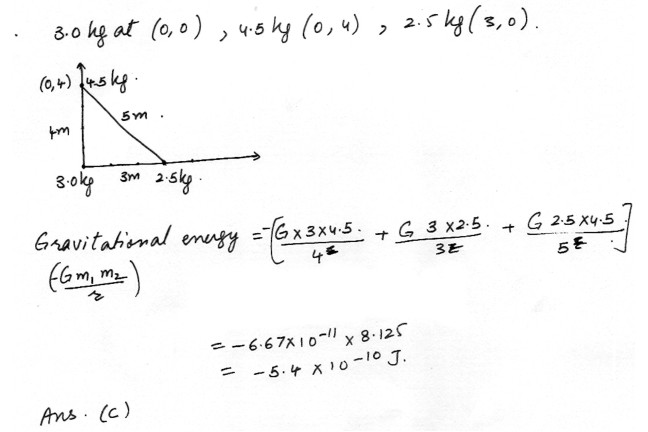 . 3.0 kg at (0,0) , 4.5 kg (0,4) , 2.5 kg (3,0).
(0,4) 4.5 kg.
5m .
4m
3.0kg 3m 2.5kg.
Gravitational energy = -[G×3×4.5/4 + G 3×2.5/3 + G 2.5×4.5/5]
(-Gm₁m₂/r)
= -6.67×10⁻¹¹ × 8.125
= -5.4 × 10⁻¹⁰ J.
Ans. (C)